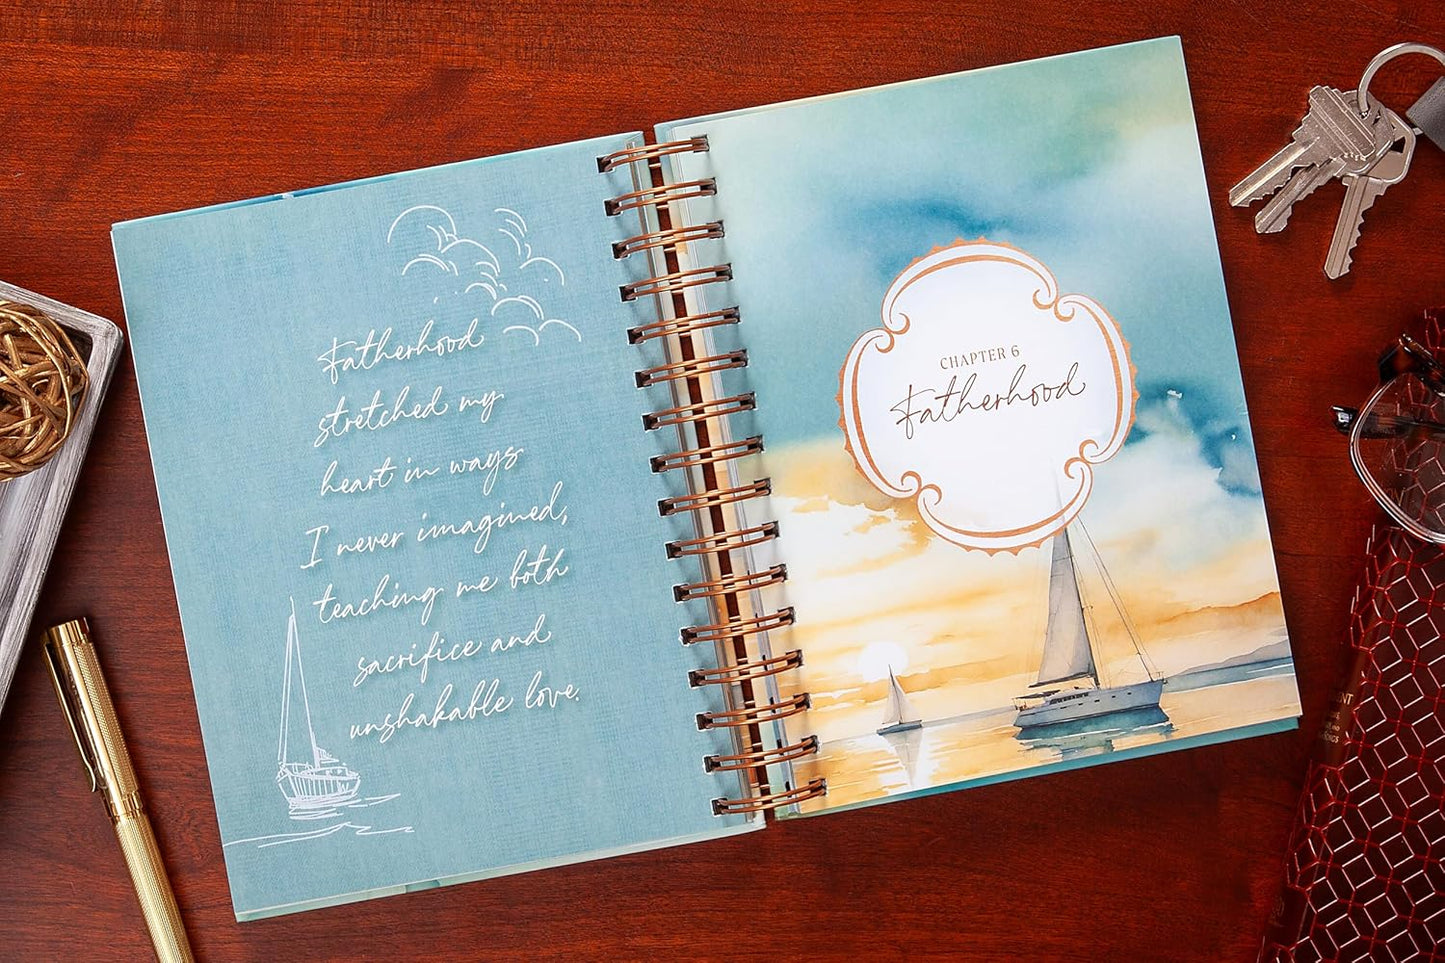 Fatherhood
stretched my
heart in ways
I never imagined,
teaching me both
sacrifice and
unshakable love.
CHAPTER 6
Fatherhood